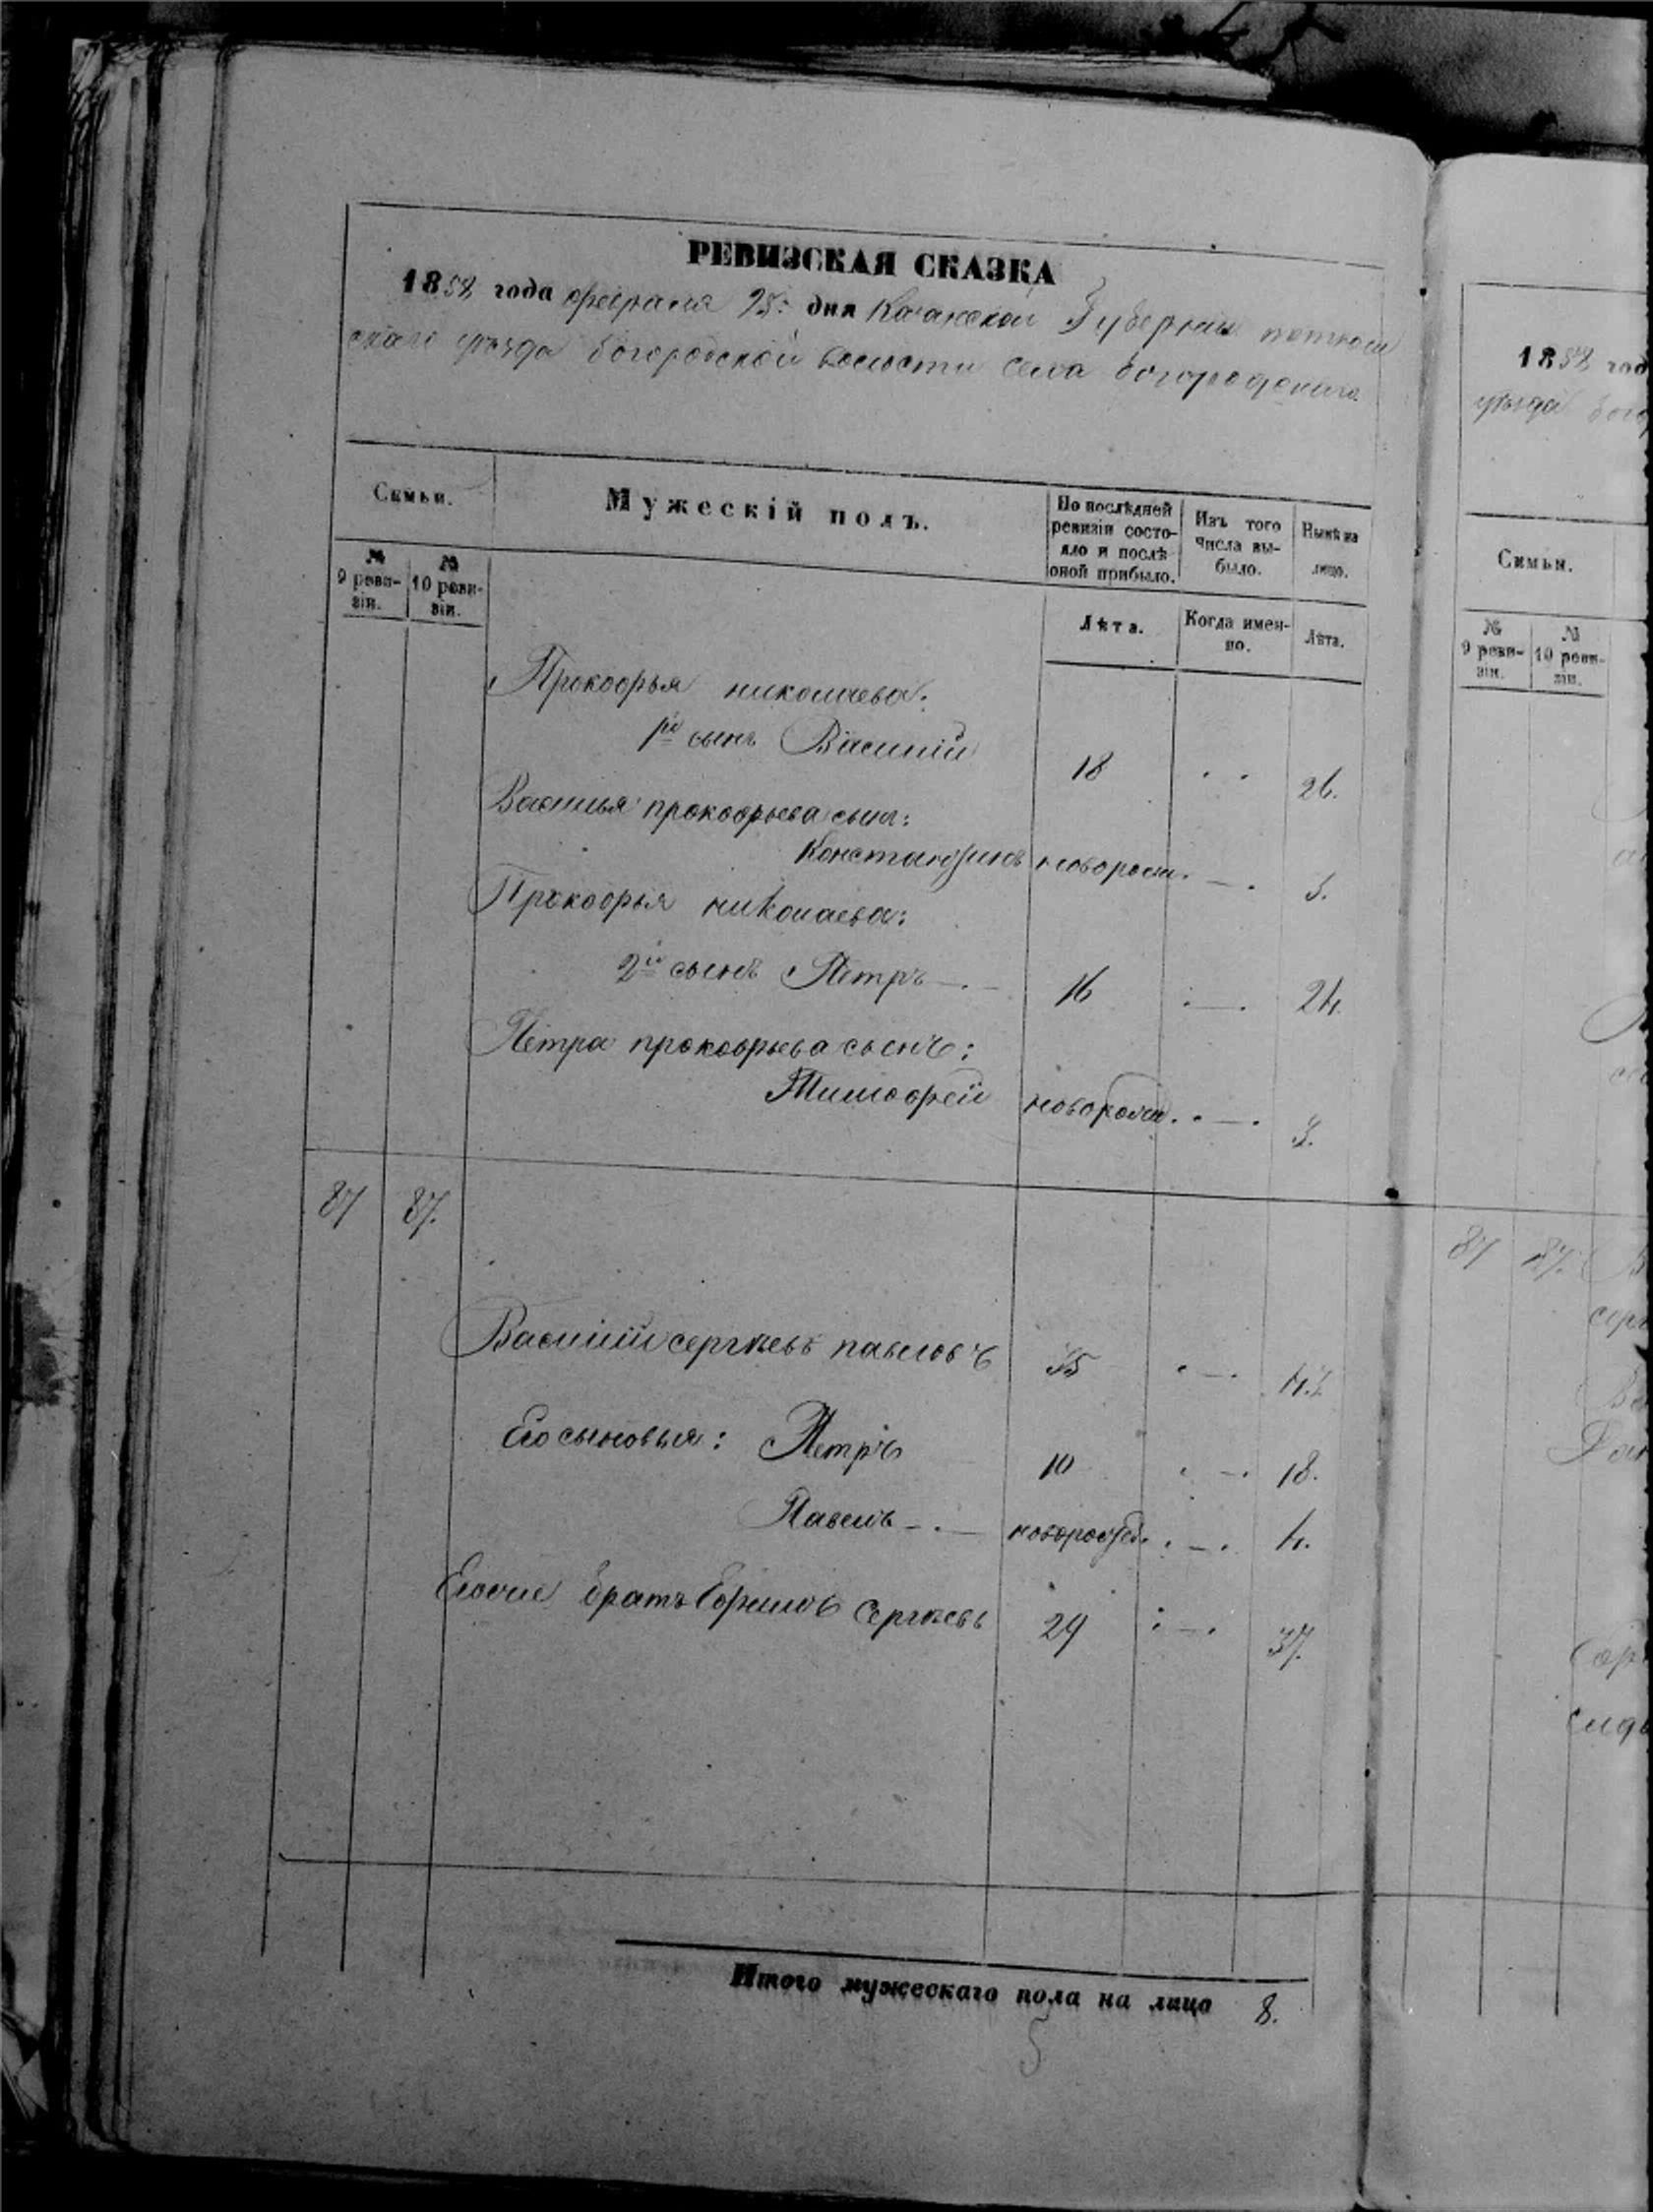 РЕВИЗСКАЯ СКАЗКА
1858 года февраля 25: дня Казанской Губернии
скаго уѣзда богородской волости села богородскаго
Семьи.
Мужескій полъ.
По послѣдней ревизіи состояло и послѣ оной прибыло.
Изъ того числа выбыло.
Нынѣ на лицо.
№ 9 ревизіи.
№ 10 ревизіи.
Лѣта.
Когда именно.
Лѣта.
Прокофья николаева:
1й сынъ Василій 18 26.
Василья прокофьева сынъ:
Константинъ новорож. 5.
Прокофья николаева:
2й сынъ Петръ 16 24.
Петра прокофьева сынъ:
Тимофей новорож. 3.
87 87.
Василій сергѣевъ павловъ 35 43
Его сыновья: Петръ 10 18.
Павелъ новорожд. 4.
братъ Ефимъ Сергѣевъ 29 37.
Итого мужескаго пола на лицо 8.
5
1858 год
уѣзда
Семьи.
№ 9 ревизіи.
№ 10 ревизіи.
87 87.